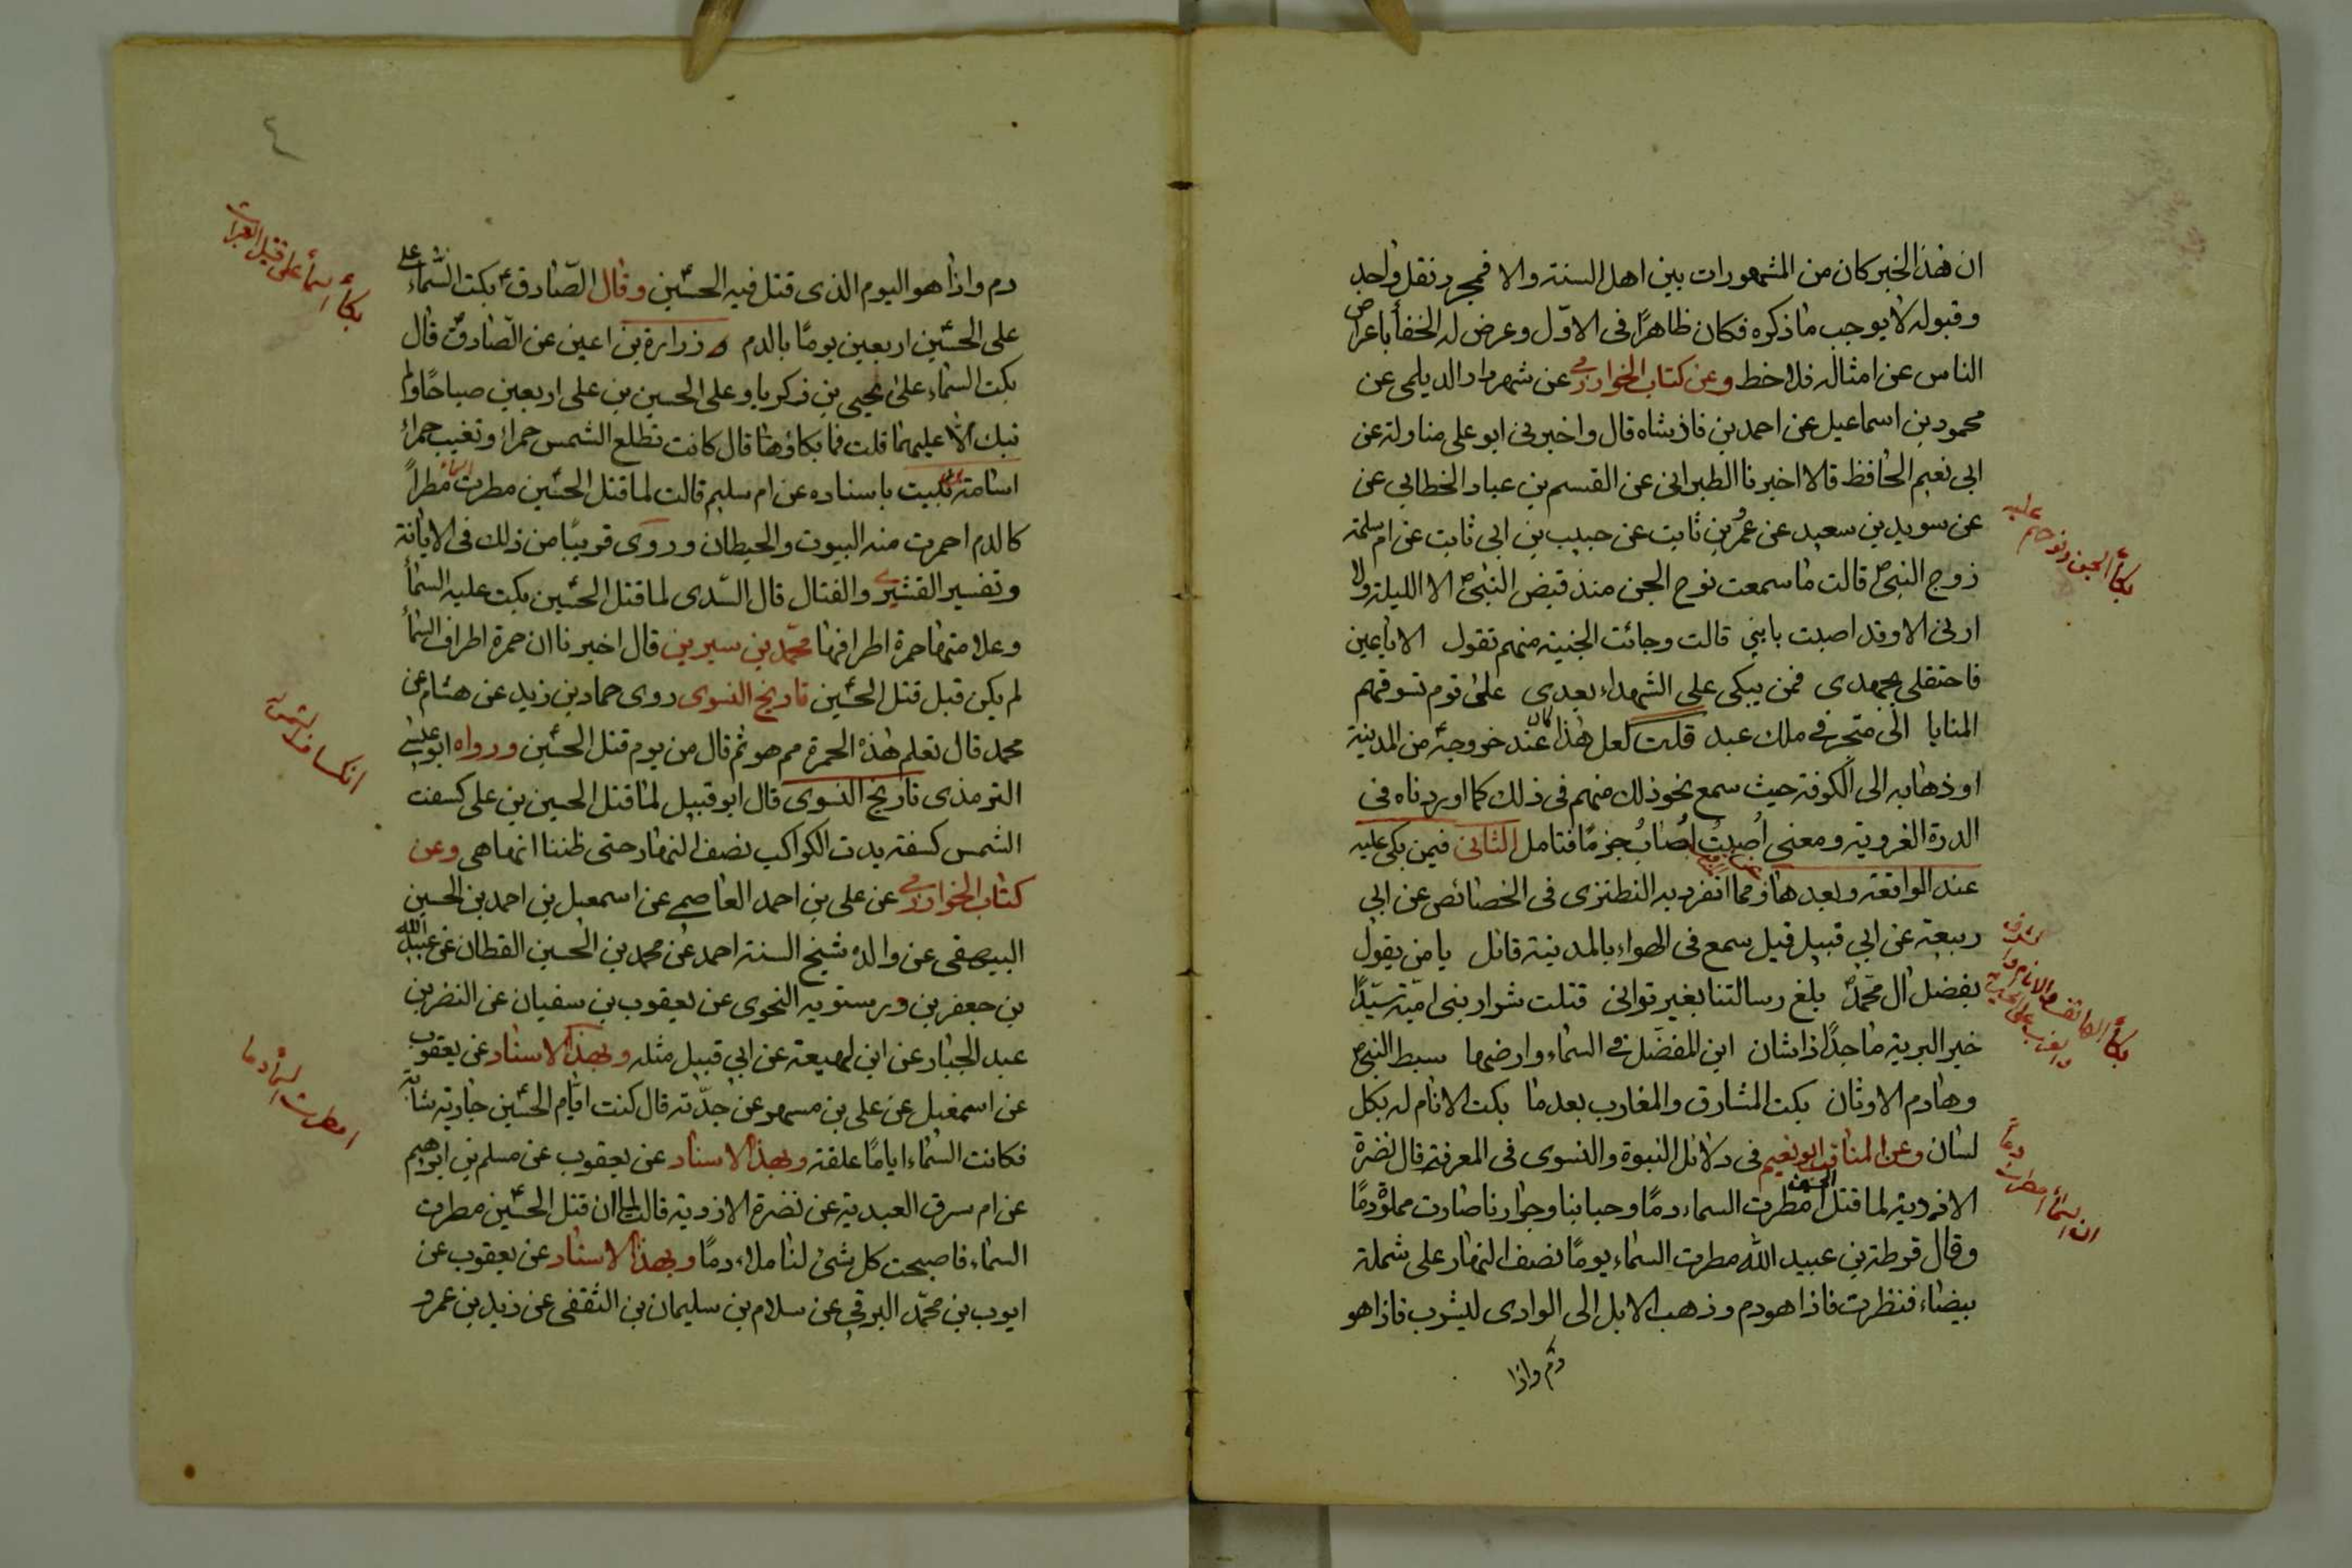 ان هذا الخبر كان من المشهورات بين اهل السنة والا فمجرد نقل واحد
وقبوله لا يوجب ما ذكره فكان ظاهرًا فى الاوّل وعرض له الخفأ باعراض
الناس عن امثاله فلاحظ وعن كتاب الخوارزمي عن شهردار الديلمى عن
محمود بن اسماعيل عن احمد بن فاذشاه قال واخبرنى ابو على مناولة عن
ابى نعيم الحافظ قالا اخبرنا الطبرانى عن القسم بن عباد الخطابي عن
عن سويد بن سعيد عن عمرو بن ثابت عن حبيب بن ابى ثابت عن ام سلمة
زوج النبى ص قالت ما سمعت نوح الجن منذ قبض النبى ص الا الليلة ولا
ارنى الا وقد اصبت بابني قالت وجائت الجنية منهم تقول الا يا عين
فاحتفلى بجهدى فمن يبكى على الشهداء بعدى على قوم تسوقهم
المنايا الى متجبر فى ملك عبد قلت لعل هذا كان عند خروجه من المدينة
او ذهابه الى الكوفة حيث سمع نحو ذلك منهم فى ذلك كما اوردناه فى
الدرة الغروية ومعنى اُصبتُ اُصابُ جزمًا فتامل الثانى فيمن بكى عليه
عند الواقعة وبعدها ومما انفرد به النطنزى فى الخصائص عن ابي
ربيعة عن ابي قبيل قيل سمع فى الهواء بالمدينة قائل يا من يقول
بفضل ال محمد بلغ رسالتنا بغير توانى قتلت شرار بنى اميّة سيّدًا
خير البرية ماجدًا ذا شان ابن المفضّل فى السماء وارضها سبط النبى ص
وهادم الاوثان بكت المشارق والمغارب بعدما بكت الانام له بكل
لسان وعن المناقب ابو نعيم فى دلائل النبوة والنسوى فى المعرفة قال نضرة
الازدية لما قتل الحسين امطرت السماء دمًا وحبابنا وجرارنا صارت مملوة دمًا
وقال قرطة بن عبيد الله مطرت السماء يومًا نصف النهار على شملة
بيضاء فنظرت فاذا هو دم وذهب الابل الى الوادى ليشرب فاذا هو
دم واذا
بكأ الجن ونوحهم عليه
ان السمأ امطرت دمًا
٤
دم واذا هو اليوم الذى قتل فيه الحسين وقال الصّادق ع بكت السّماء على
على الحسين اربعين يومًا بالدم زرارة بن اعين عن الصّادق ع قال
بكت السّماء على يحيى بن زكريا وعلى الحسين بن على اربعين صباحًا ولم
تبك الّا عليهما قلت فما بكاؤها قال كانت تطلع الشمس حمراء وتغيب حمراء
اسامة بن شبيب باسناده عن ام سليم قالت لما قتل الحسين مطرت السماء مطراً
كالدم احمرت منه البيوت والحيطان وروى قريبًا من ذلك فى الابانة
وتفسير القشيرى والفتال قال السّدى لما قتل الحسين بكت عليه السمأ
وعلامتها حمرة اطرافها محمّد بن سيرين قال اخبرنا ان حمرة اطراف السمأ
لم يكن قبل قتل الحسين تاريخ النسوى روى حماد بن زيد عن هشام عن
محمد قال تعلم هذه الحمرة مم هو ثم قال من يوم قتل الحسين ورواه ابو عيسى
الترمذى تاريخ النسوى قال ابو قبيل لما قتل الحسين بن على كسفت
الشمس كسفة بدت الكواكب نصف النهار حتى ظننا انها هى وعن
كتاب الخوارزمي عن على بن احمد العاصمى عن اسمعيل بن احمد بن الحسين
البيهقى عن والده شيخ السنة احمد عن محمد بن الحسين القطان عن عبيد الله
بن جعفر بن درستويه النحوى عن يعقوب بن سفيان عن النضر بن
عبد الجبار عن ابن لهيعة عن ابي قبيل مثله وبهذا الاسناد عن يعقوب
عن اسمعيل عن على بن مسهر عن جدّته قال كنت ايّام الحسين جارية شابّة
فكانت السّماء ايامًا علقة وبهذا الاسناد عن يعقوب عن مسلم بن ابرهيم
عن ام سرق العبدية عن نضرة الازدية قالت لما ان قتل الحسين مطرت
السماء فاصبحت كل شئ لنا ملاء دمًا وبهذا الاسناد عن يعقوب عن
ايوب بن محمّد البرقى عن سلام بن سليمان بن الثقفى عن زيد بن عمرو
انكساف الشمس
امطرت السمأ دما